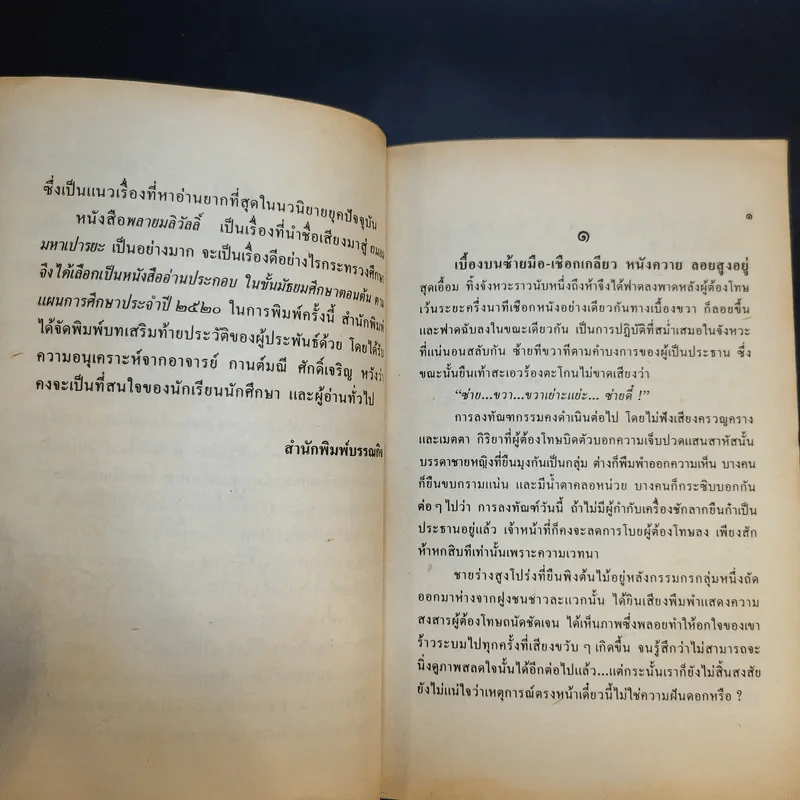 ซึ่งเป็นแนวเรื่องที่หาอ่านยากที่สุดในนวนิยายยุคปัจจุบัน
หนังสือพลายมลิวัลลิ์ เป็นเรื่องที่นำชื่อเสียงมาสู่ ถนอม
มหาเปารยะ เป็นอย่างมาก จะเป็นเรื่องดีอย่างไรกระทรวงศึกษา
จึงได้เลือกเป็นหนังสืออ่านประกอบ ในชั้นมัธยมศึกษาตอนต้น ตาม
แผนการศึกษาประจำปี ๒๕๒๐ ในการพิมพ์ครั้งนี้ สำนักพิมพ์
ได้จัดพิมพ์บทเสริมท้ายประวัติของผู้ประพันธ์ด้วย โดยได้รับ
ความอนุเคราะห์จากอาจารย์ กานต์มณี ศักดิ์เจริญ หวังว่า
คงจะเป็นที่สนใจของนักเรียนนักศึกษา และผู้อ่านทั่วไป
สำนักพิมพ์บรรณกิจ
๑
๑
เบื้องบนซ้ายมือ-เชือกเกลียว หนังควาย ลอยสูงอยู่
สุดเอื้อม ทิ้งจังหวะราวนับหนึ่งถึงห้าจึงได้ฟาดลงพาดหลังผู้ต้องโทษ
เว้นระยะครึ่งนาทีเชือกหนังอย่างเดียวกันทางเบื้องขวา ก็ลอยขึ้น
และฟาดฉับลงในขณะเดียวกัน เป็นการปฏิบัติที่สม่ำเสมอในจังหวะ
ที่แน่นอนสลับกัน ซ้ายทีขวาทีตามคำบงการของผู้เป็นประธาน ซึ่ง
ขณะนั้นยืนเท้าสะเอวร้องตะโกนไม่ขาดเสียงว่า
“ซ่าย...ขวา...ขวาเย่าะแย่ะ... ซ่ายดี้ !”
การลงทัณฑกรรมคงดำเนินต่อไป โดยไม่ฟังเสียงครวญคราง
และเมตตา กิริยาที่ผู้ต้องโทษบิดตัวบอกความเจ็บปวดแสนสาหัสนั้น
บรรดาชายหญิงที่ยืนมุงกันเป็นกลุ่ม ต่างก็พึมพำออกความเห็น บางคน
ก็ยืนขบกรามแน่น และมีน้ำตาคลอหน่วย บางคนก็กระซิบบอกกัน
ต่อ ๆ ไปว่า การลงทัณฑ์วันนี้ ถ้าไม่มีผู้กำกับเครื่องชักลากยืนกำเป็น
ประธานอยู่แล้ว เจ้าหน้าที่ก็คงจะลดการโบยผู้ต้องโทษลง เพียงสัก
ห้าหกสิบทีเท่านั้นเพราะความเวทนา
ชายร่างสูงโปร่งที่ยืนพิงต้นไม้อยู่หลังกรรมกรกลุ่มหนึ่งถัด
ออกมาห่างจากฝูงชนชาวละแวกนั้น ได้ยินเสียงพึมพำแสดงความ
สงสารผู้ต้องโทษถนัดชัดเจน ได้เห็นภาพซึ่งพลอยทำให้อกใจของเขา
ร้าวระบมไปทุกครั้งที่เสียงขวับ ๆ เกิดขึ้น จนรู้สึกว่าไม่สามารถจะ
นิ่งดูภาพสลดใจนั้นได้อีกต่อไปแล้ว...แต่กระนั้นเราก็ยังไม่สิ้นสงสัย
ยังไม่แน่ใจว่าเหตุการณ์ตรงหน้าเดี๋ยวนี้ไม่ใช่ความฝันดอกหรือ ?